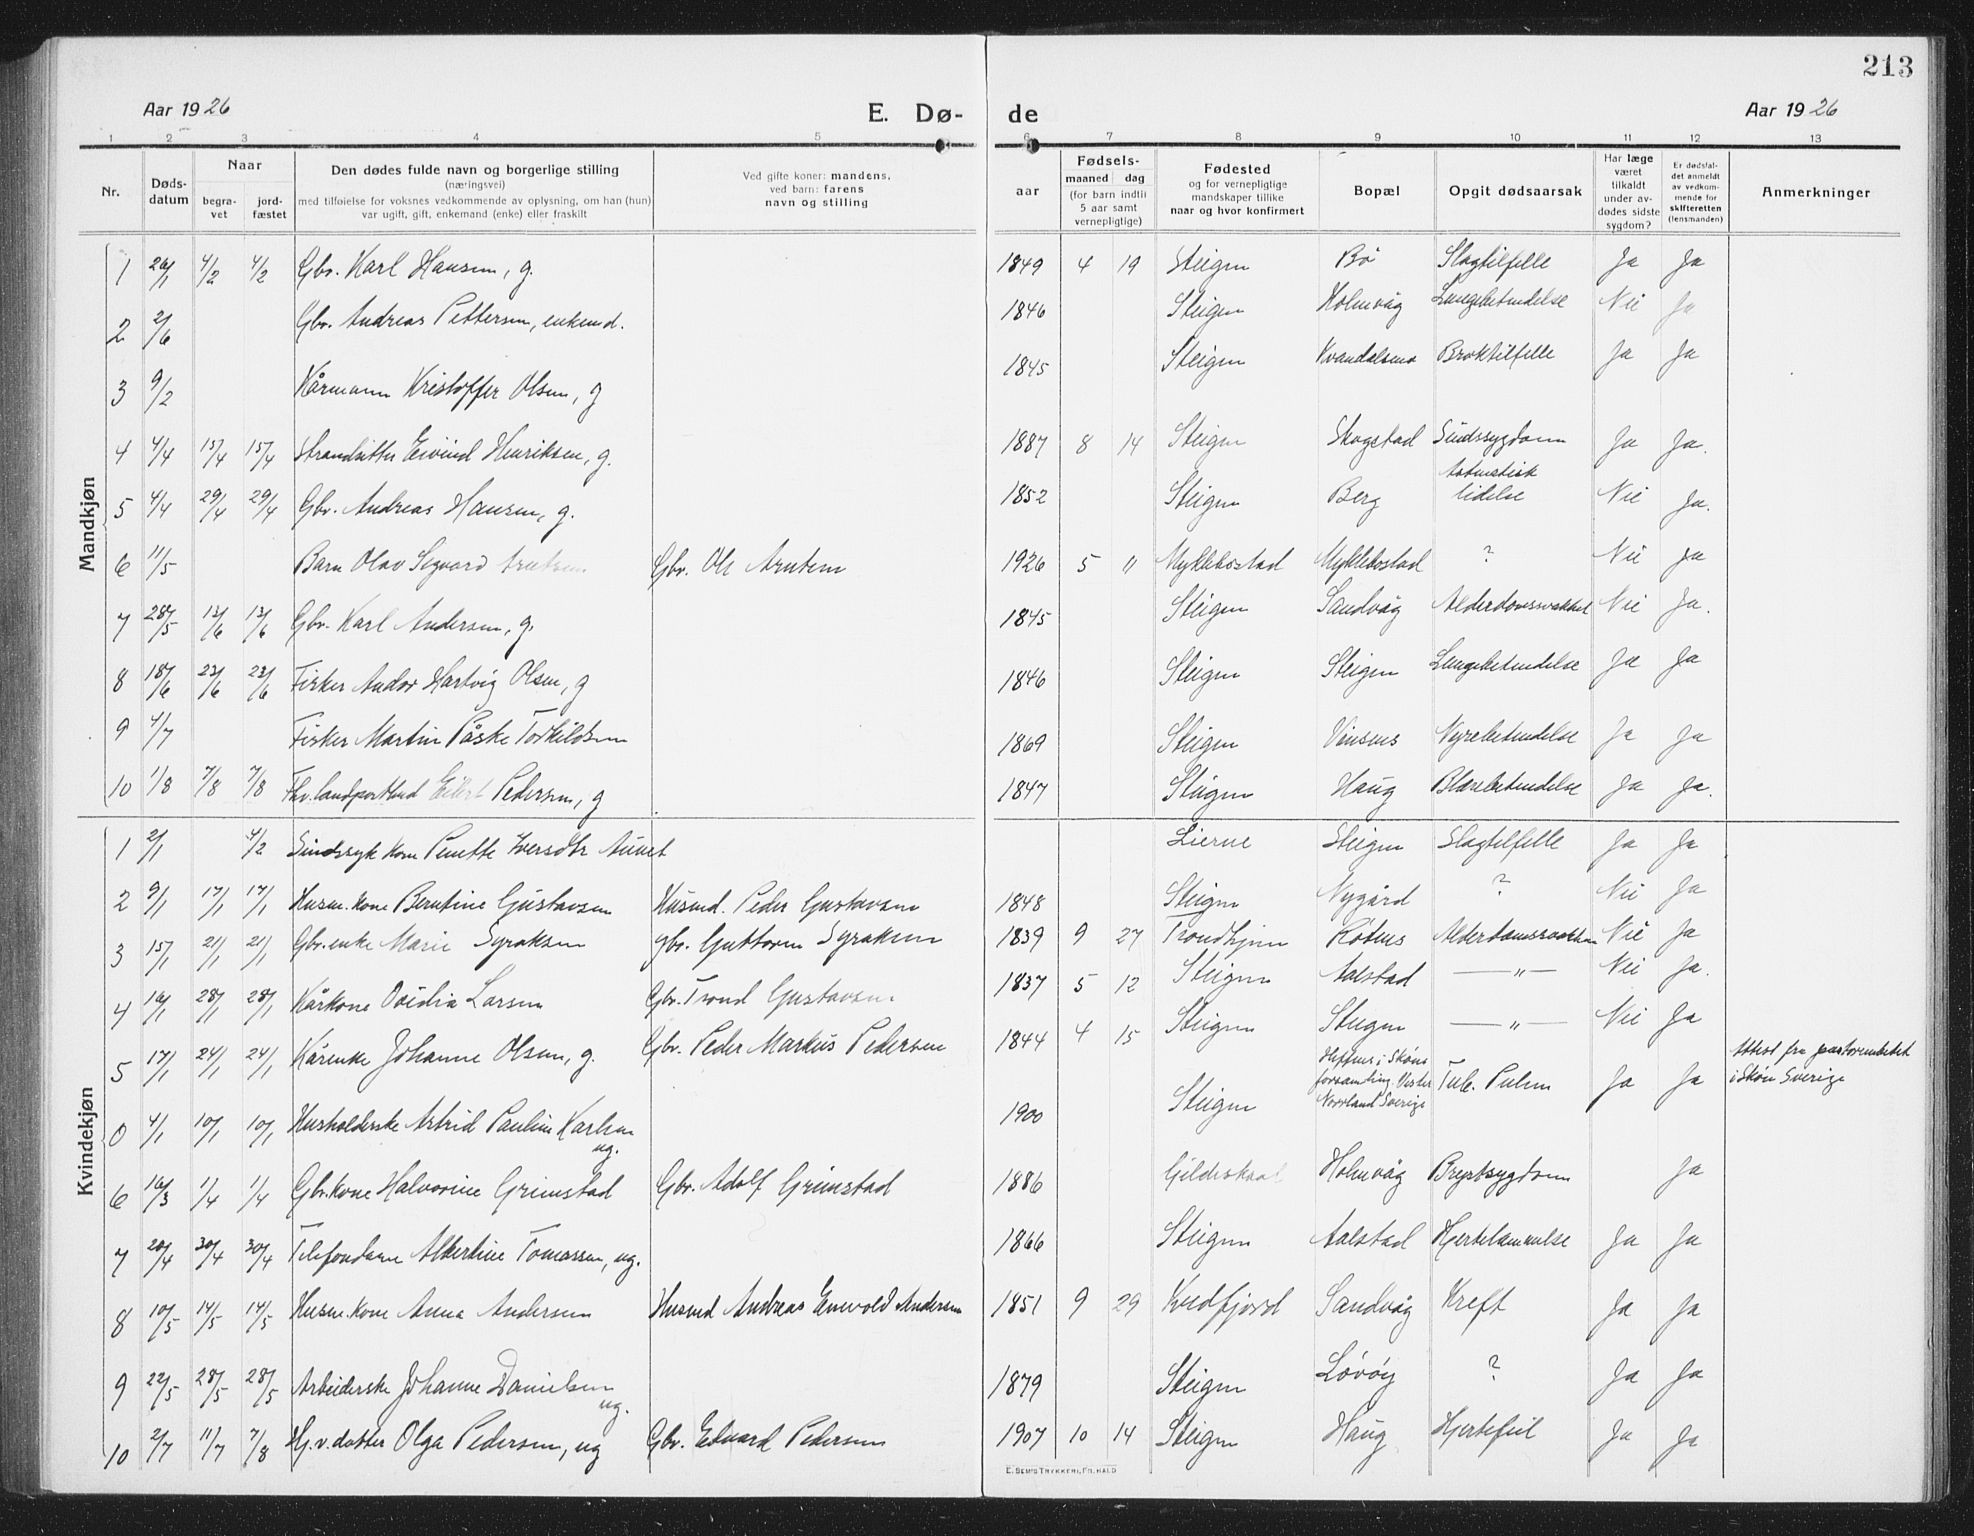 213
Aar 1926 E. Dø- de Aar 1926
1 2 3 4 5 6 7 8 9 10 11 12 13
Nr. Døds-datum Naar begra-vet jord-fæstet Den dødes fulde navn og borgerlige stilling (næringsvei) med tilføielse for voksnes vedkommende av oplysning, om han (hun) var ugift, gift, enkemand (enke) eller fraskilt Ved gifte koner: mandens, ved barn: farens navn og stilling aar Fødsels- maaned dag (for barn indtil 5 aar samt vernepligtige) Fødested og for vernepligtige mandskaper tillike naar og hvor konfirmert Bopæl Opgit dødsaarsak Har læge været tilkaldt under av-dødes sidste sygdom? Er dødsfal-det anmeldt av vedkom-mende for skifteretten (lensmanden) Anmerkninger
Mandkjøn
1 26/1 4/2 4/2 Gbr. Karl Hansen, g. 1849 4 19 Steigen Bø Slagtilfelle Ja Ja
2 2/6 Gbr. Andreas Pettersen, enkemd. 1846 Steigen Holmvåg Lungebetendelse Nei Ja
3 9/2 Kårmann Kristoffer Olsen, g 1845 Steigen Kvandalsmo Broktilfelle Ja Ja
4 4/4 15/4 15/4 Strandsitter Eivind Henriksen, g. 1887 8 14 Steigen Skogstad Sindssygdom Ja Ja.
5 4/4 29/4 29/4 Gbr. Andreas Hansen, g. 1852 Steigen Berg Astmatisk lidelse Nei Ja.
6 11/5 Barn Olav Sigvard Arntsen Gbr. Ole Arntsen 1926 5 " Myklebostad Myklebostad ? Nei Ja
7 28/5 13/6 13/6 Gbr. Karl Andersen, g. 1845 Steigen Sandvåg Alderdomssvakhet Nei Ja.
8 18/6 23/6 23/6 Fisker Andor Hartvig Olsen, g 1846 Steigen Steigen Lungebetendelse Ja Ja
9 4/7 Fisker Martin Påske Torkildsen 1869 Steigen Vinsnes Nyrebetendelse Ja Ja
10 1/8 7/8 7/8 Fhv. landpostbud Eilert Pedersen, g 1847 Steigen Haug Blærebetendelse Ja Ja.
Kvindekjøn
1 2/1 4/2 Sindssyk kone Penette Iversdtr Aunet Lierne Steigen Slagtilfelle Ja Ja
2 9/1 17/1 17/1 Husm. kone Berntine Gustavsen Husmd. Peder Gustavsen 1848 Steigen Nygård ? Nei Ja
3 15/1 21/1 21/1 Gbr. enke Marie Syraksen Gbr. Guttorm Syraksen 1839 9 27 Trondhjem Røtnes Alderdomssvakhet Nei Ja
4 16/1 28/1 28/1 Kårkone Ovidia Larsen Gbr. Trond Gustavsen 1837 5 12 Steigen Aalstad — " — Nei Ja.
5 17/1 24/1 24/1 Kårenke Johanne Olsen, g. Gbr. Peder Markus Pedersen 1844 4 15 Steigen Steigen — " — Nei Ja
0 4/1 10/1 10/1 Husholderske Astrid Pauline Karlsen ug. 1900 Steigen i Skøns forsamling. Vester Norrland Sverige Tub. Pulm Ja Ja Attest fra pastorembetet i Skøn Sverige
6 16/3 1/4 1/4 Gbr. kone Halvorine Grimstad Gbr. Adolf Grimstad 1886 Gildeskaal Holmvåg Brystsygdom Ja
7 20/4 30/4 30/4 Telefondame Albertine Tomassen, ug. 1866 Steigen Aalstad Hjertelammelse Ja Ja
8 10/5 14/5 14/5 Husm. kone Anna Andersen Husmd Andreas Enevold Andersen 1851 9 29 Kvedfjord Sandvåg Kreft Ja Ja
9 22/5 28/5 28/5 Arbeiderske Johanne Danielsen ug. 1879 Steigen Løvøy ? Ja Ja
10 2/7 11/7 7/8 Hj.v. datter Olga Pedersen, ug Gbr. Edvard Pedersen 1907 10 14 Steigen Haug Hjertefeil Ja Ja
E. SEM'S TRYKKERI, FR.HALD